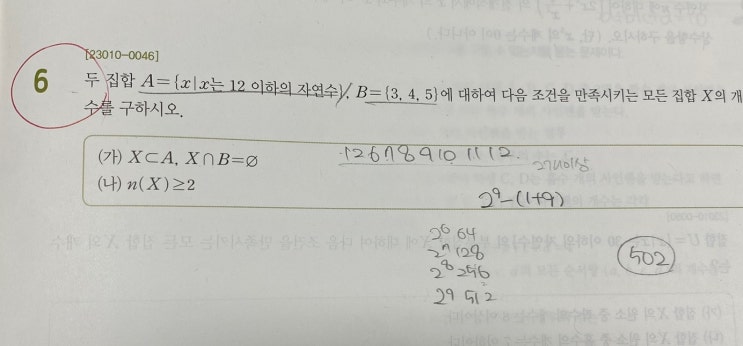 [23010-0046]
6 두 집합 A={x|x는 12 이하의 자연수}, B={3, 4, 5}에 대하여 다음 조건을 만족시키는 모든 집합 X의 개
수를 구하시오.
(가) X⊂A, X∩B=∅
1 2 6 7 8 9 10 11 12
2개이상
(나) n(X)≥2
2⁹-(1+9)
2⁶ 64
2⁷ 128
2⁸ 256
2⁹ 512
502